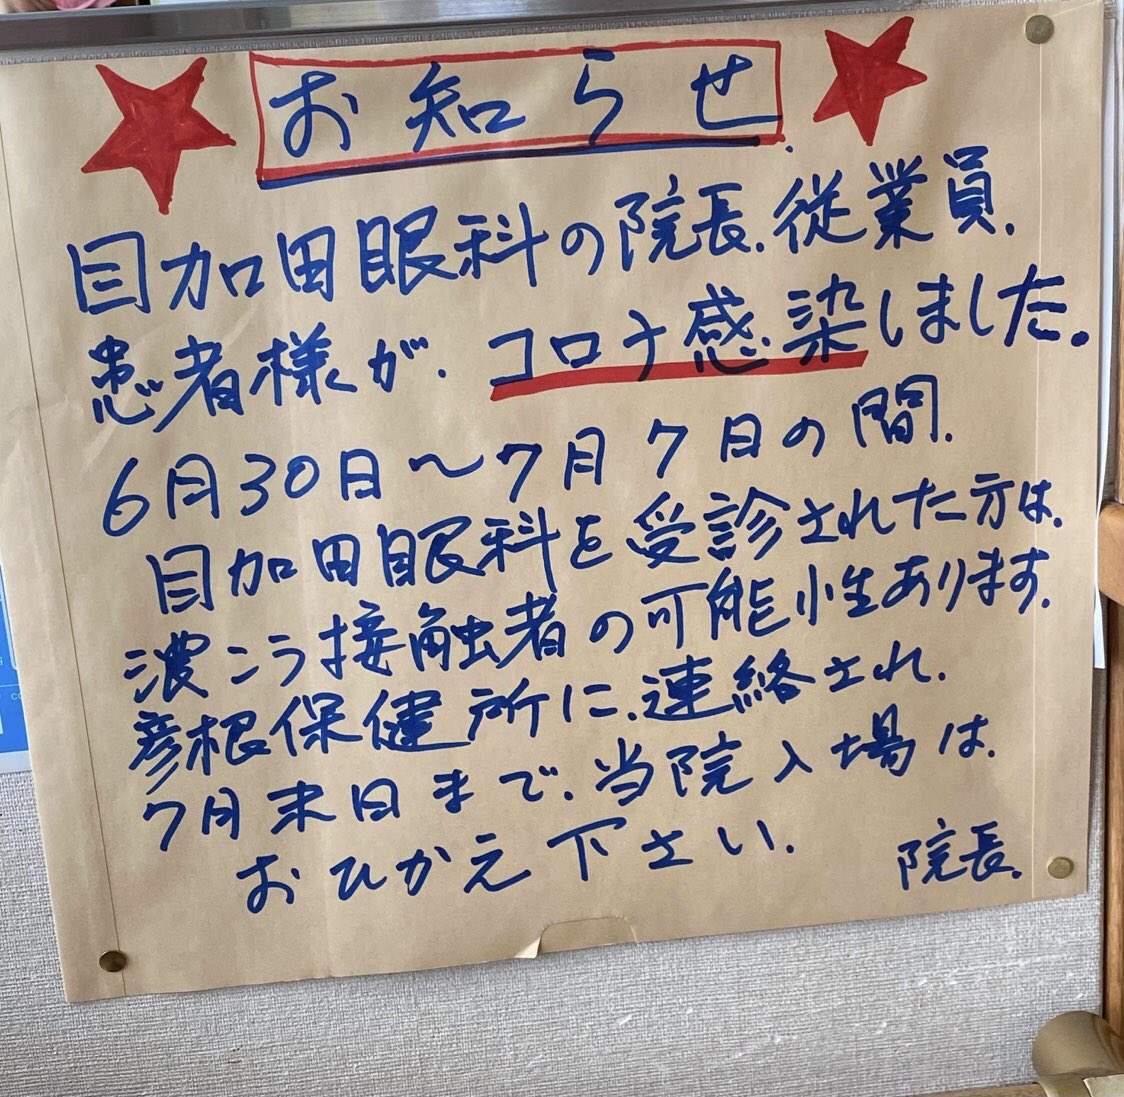 お知らせ
目加田眼科の院長.従業員.
患者様が.コロナ感染しました。
6月30日〜7月7日の間.
目加田眼科を受診された方は.
濃こう接触者の可能性あります.
彦根保健所に.連絡され.
7月末日まで.当院入場は.
おひかえ下さい.
院長.